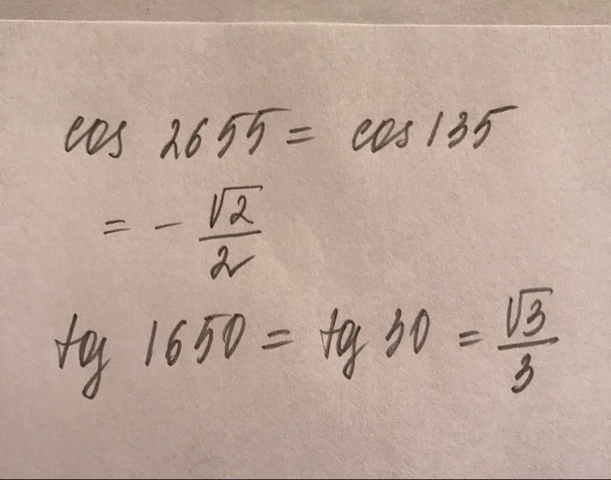 cos 2655 = cos 135
= - √2/2
tg 1650 = tg 30 = √3/3